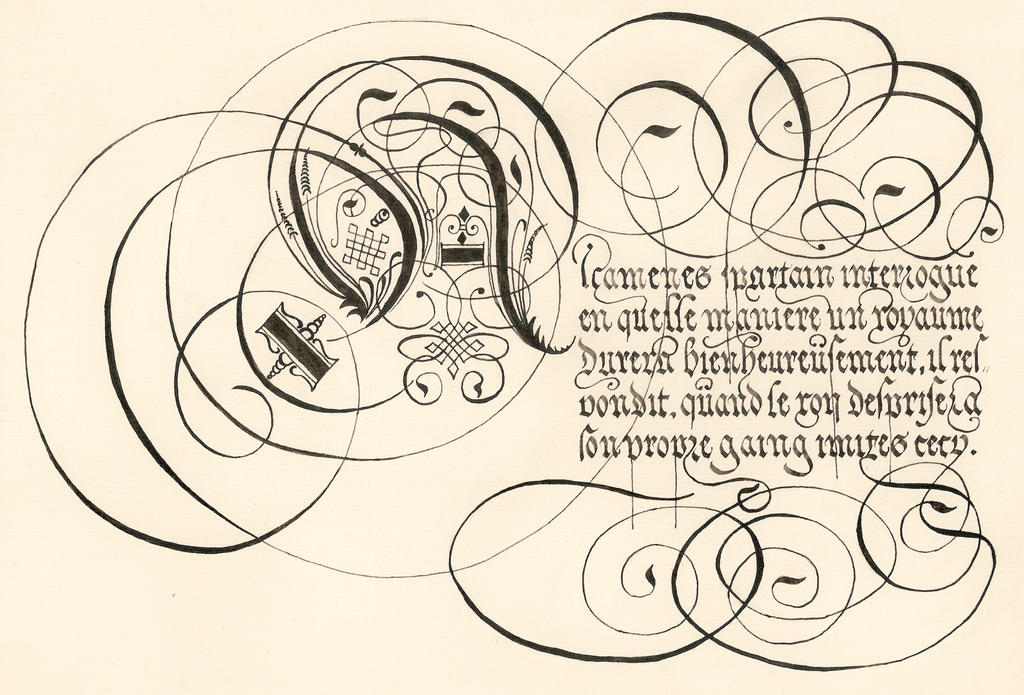 Alcamenes spartain interrogue
en quelle maniere un royaume
Durera bienheureusement, il res-
pondit, quand le roy desprisera
son propre gaing imites cecy.